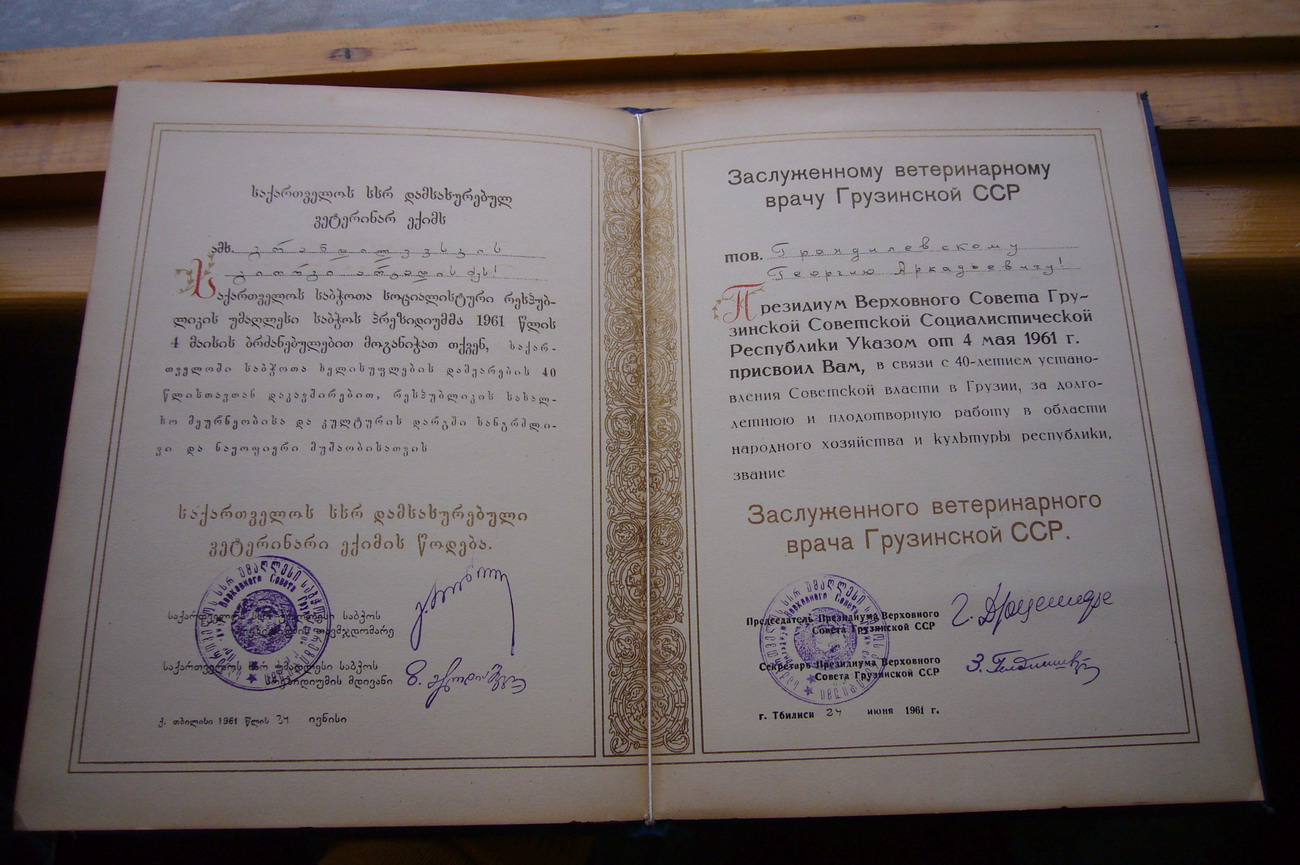 საქართველოს სსრ დამსახურებულ
ვეტერინარ ექიმს
ამხ. გრანდილევსკის
გიორგი არკადის ძეს!
საქართველოს საბჭოთა სოციალისტური რესპუბ-
ლიკის უმაღლესი საბჭოს პრეზიდიუმმა 1961 წლის
4 მაისის ბრძანებულებით მოგანიჭათ თქვენ, საქარ-
თველოში საბჭოთა ხელისუფლების დამყარების 40
წლისთავთან დაკავშირებით, რესპუბლიკის სახალ-
ხო მეურნეობისა და კულტურის დარგში ხანგრძლი-
ვი და ნაყოფიერი მუშაობისათვის
საქართველოს სსრ დამსახურებული
ვეტერინარი ექიმის წოდება.
საქართველოს სსრ უმაღლესი საბჭოს
პრეზიდიუმის თავმჯდომარე
საქართველოს სსრ უმაღლესი საბჭოს
პრეზიდიუმის მდივანი
ქ. თბილისი 1961 წლის 24 ივნისი
Заслуженному ветеринарному
врачу Грузинской ССР
тов. Грандилевскому
Георгию Аркадьевичу!
Президиум Верховного Совета Гру-
зинской Советской Социалистической
Республики Указом от 4 мая 1961 г.
присвоил Вам, в связи с 40-летием установ-
ления Советской власти в Грузии, за долго-
летнюю и плодотворную работу в области
народного хозяйства и культуры республики,
звание
Заслуженного ветеринарного
врача Грузинской ССР.
Председатель Президиума Верховного
Совета Грузинской ССР
Г. Дзоценидзе
Секретарь Президиума Верховного
Совета Грузинской ССР
г. Тбилиси 24 июня 1961 г.